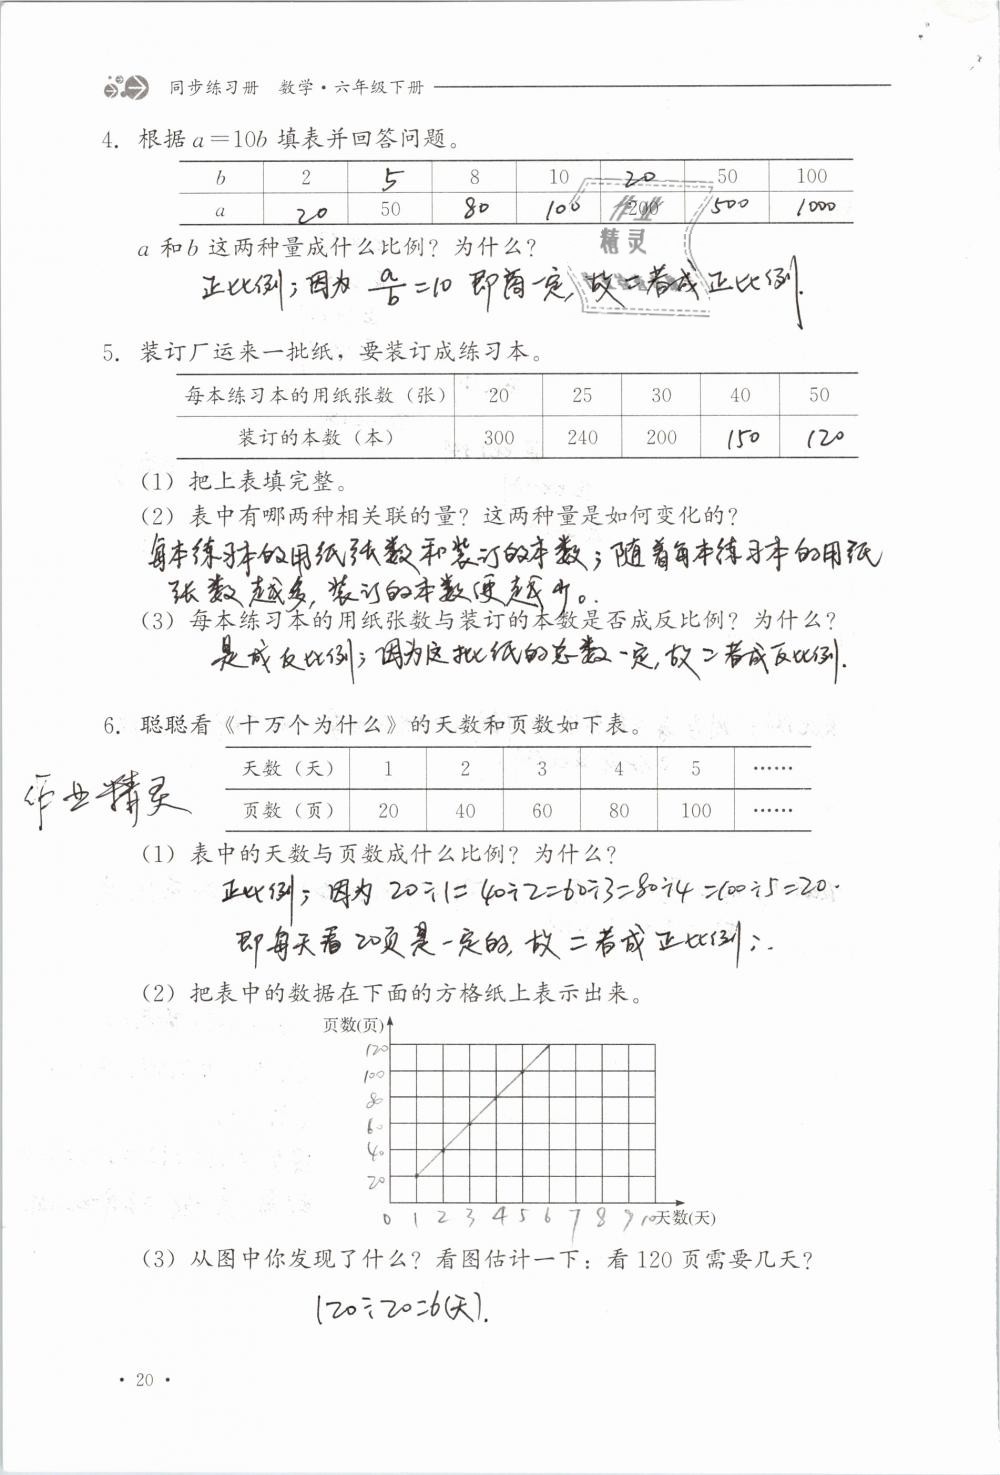 同步练习册 数学·六年级下册
4. 根据a=10b填表并回答问题。
b 2 5 8 10 20 50 100
a 20 50 80 100 200 500 1000
作业
精灵
a和b这两种量成什么比例？为什么？
正比例；因为a/b=10 即商一定，故二者成正比例.
5. 装订厂运来一批纸，要装订成练习本。
每本练习本的用纸张数（张） 20 25 30 40 50
装订的本数（本） 300 240 200 150 120
（1）把上表填完整。
（2）表中有哪两种相关联的量？这两种量是如何变化的？
每本练习本的用纸张数和装订的本数；随着每本练习本的用纸
张数越多，装订的本数便越少。
（3）每本练习本的用纸张数与装订的本数是否成反比例？为什么？
是成反比例；因为这批纸的总数一定，故二者成反比例.
6. 聪聪看《十万个为什么》的天数和页数如下表。
天数（天） 1 2 3 4 5 ……
作业精灵
页数（页） 20 40 60 80 100 ……
（1）表中的天数与页数成什么比例？为什么？
正比例；因为 20÷1=40÷2=60÷3=80÷4=100÷5=20.
即每天看20页是一定的，故二者成正比例；.
（2）把表中的数据在下面的方格纸上表示出来。
页数(页)
120
100
80
60
40
20
0 1 2 3 4 5 6 7 8 9 10 天数(天)
（3）从图中你发现了什么？看图估计一下：看120页需要几天？
120÷20=6(天).
· 20 ·